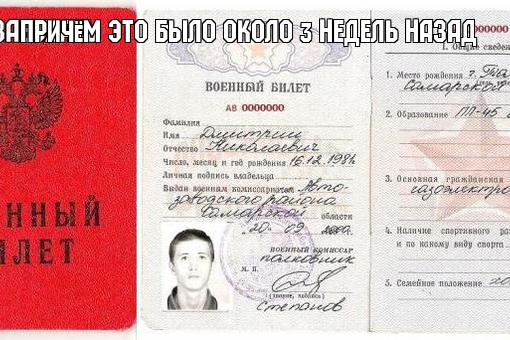 ЗАПРИЧЁМ ЭТО БЫЛО ОКОЛО 3 НЕДЕЛЬ НАЗАД
ЕННЫЙ
ИЛЕТ
ВОЕННЫЙ БИЛЕТ
АВ 0000000
Фамилия
Имя Дмитрий
Отчество Николаевич
Число, месяц и год рождения 16.12.198
Личная подпись владельца
Выдан военным комиссариатом Авто-
заводского района
Самарской области
20 09
ВОЕННЫЙ КОМИССАР
полковник
М. П.
(звание, подпись)
Степанов
I. Общие сведен
1. Место рождения г.
Самарской
2. Образование ПЛ-45
3. Основная гражданская
газоэлектро
4. Наличие спортивного раз
и по какому виду спорта
5. Семейное положение